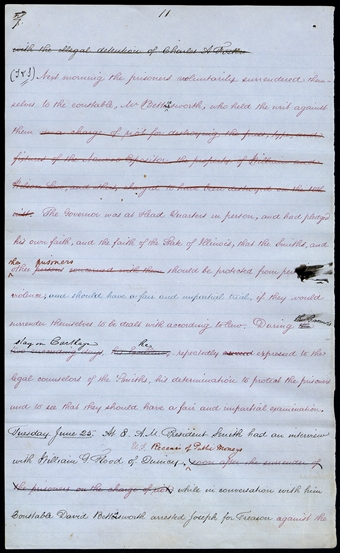 11
with the illegal detention of Charles A. Foster
Next morning the prisoners voluntarily surrendered them-
selves to the constable, Mr Bettisworth, who held the writ against
them on a charge of riot for destroying the press, type, and
fixtures of the Nauvoo Expositor, the property of William and
Wilson Law, and others, alleged to have been destroyed on the 10th
inst. The Governor was at Head Quarters in person, and had pledged
his own faith, and the faith of the State of Illinois, that the Smiths, and
the prisoners
other persons concerned with them should be protected from per
violence, and should have a fair and impartial trial, if they would
surrender themselves to be dealt with according to law. During
the Governor's
stay in Carthage he
repeatedly expressed to the
legal counselors of the Smiths, his determination to protect the prisoners
and to see that they should have a fair and impartial examination.
Tuesday June 25. At 8. A.M. President Smith had an interview
U.S. Receiver of Public Moneys
with William G Flood of Quincy, soon after the surrender of
the prisoners on the charge of riot, while in conversation with him
Constable David Bettisworth arrested Joseph for Treason against the